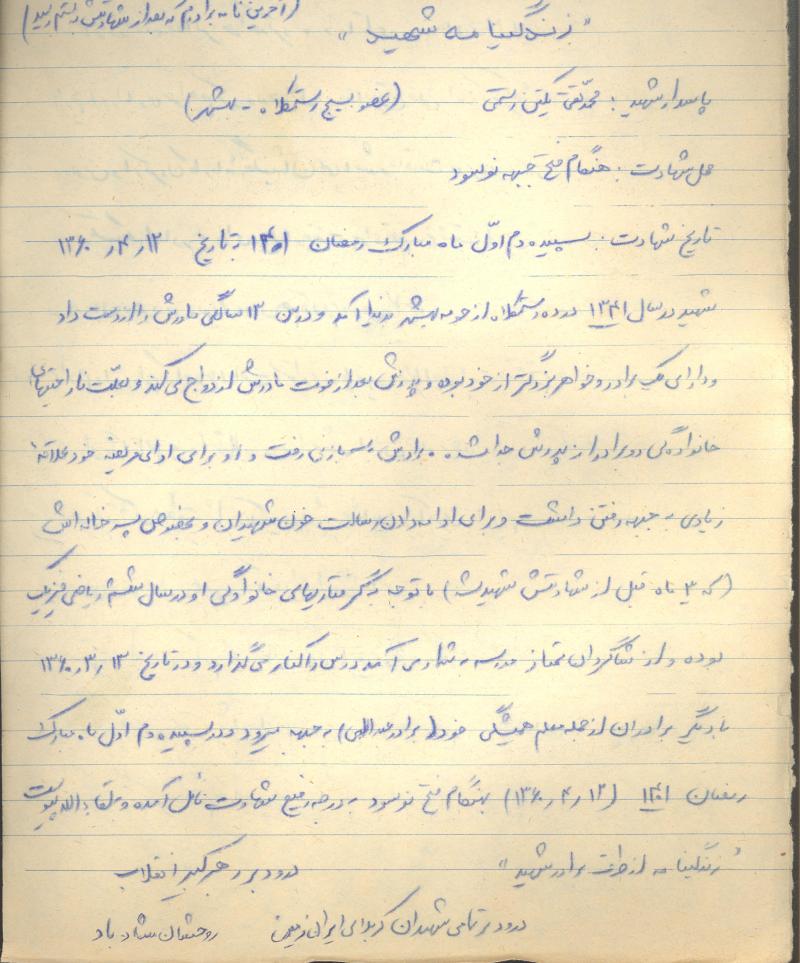 (آخرین نامه برادرم که بعد از شهادتش بدستم رسید)
"زندگینامه شهید"
پاسدار شهید : محمدتقی نیکبین رستمی (عضو بسیج رستمکلاء - بهشهر)
محل شهادت : هنگام فتح جبهه نوسود
تاریخ شهادت : سپیده دم اوّل ماه مبارک رمضان ۱۴۰۱ بتاریخ ۱۲ر۴ر۱۳۶۰
شهید در سال ۱۳۴۱ در ده رستمکلاء از حومه بهشهر بدنیا آمد و در سن ۱۳ سالگی مادرش را از دست داد
و دارای یک برادر و خواهر بزرگتر از خود بوده و پدرش بعد از فوت مادرش ازدواج می‌کند و بعلت ناراحتیهای
خانوادگی دو برادر از پدرش جدا شد. برادرش بسربازی رفت و او برای ادای فریضه خود علاقهٔ
زیادی به جبهه رفتن داشت و برای ادامه دادن رسالت خون شهیدان و بخصوص پسر خاله‌اش
(که ۳ ماه قبل از شهادتش شهید شد) با توجه به گرفتاریهای خانوادگی او در سال ششم ریاضی فیزیک
بوده و از شاگردان ممتاز مدرسه بشماری آمد درس را کنار می‌گذارد و در تاریخ ۱۳ر۳ر۱۳۶۰
با دیگر برادران از جمله معلم همیشگی خود (برادر) به جبهه میرود و در سپیده دم اوّل ماه مبارک
رمضان ۱۴۰۱ (۱۲ر۴ر۱۳۶۰) بهنگام فتح نوسود به درجه رفیع شهادت نائل آمده و بلقاءالله پیوست
"زندگینامه از طرف برادر شهید" درود بر رهبر کبیر انقلاب
درود بر تمامی شهیدان کربلای ایران زمین روحشان شاد باد